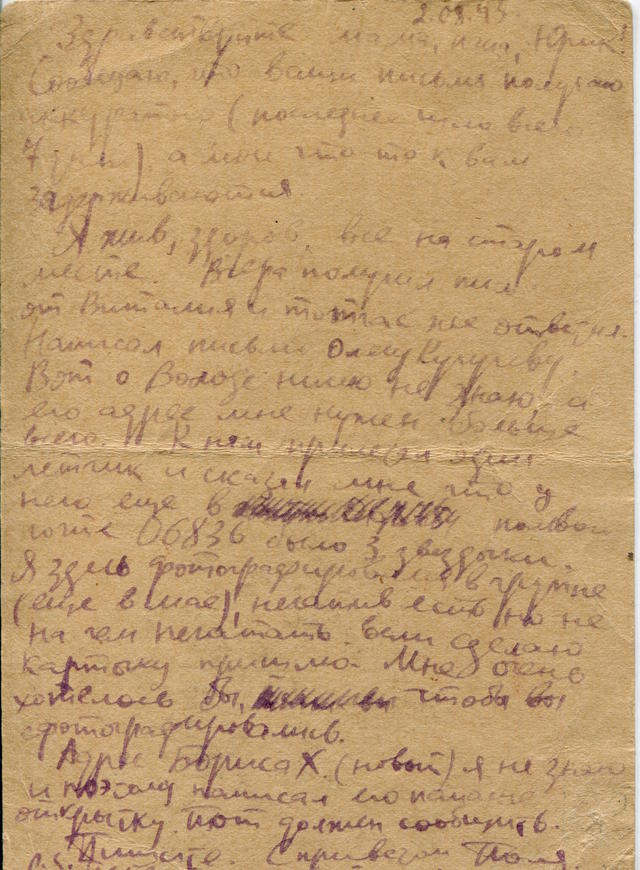 2.08.43
Здравствуйте мама, папа, Юрик!
Сообщаю, что ваши письма получаю
аккуратно (последнее шло всего
7 дней), а мои что то к вам
задерживаются.
Я жив, здоров, все на старом
месте. Вчера получил
от Виталия и тотчас же ответил.
Написал письмо Олегу
Вот о Володе ничего не знаю, а
его адрес мне нужен больше
всего. К нам приехал один
летчик и сказал мне что у
него еще в полевой
почте 06836 было 3 звездочки.
Я здесь фотографировался в группе
(еще в мае), негатив есть но не
на чем печатать. Если сделаю
карточку пришлю. Мне очень
хотелось бы, чтобы вы
сфотографировались.
Адрес Бориса Х. (новый) я не знаю
и поэтому написал его папаше
открытку. Тот должен сообщить.
Пишите. С приветом